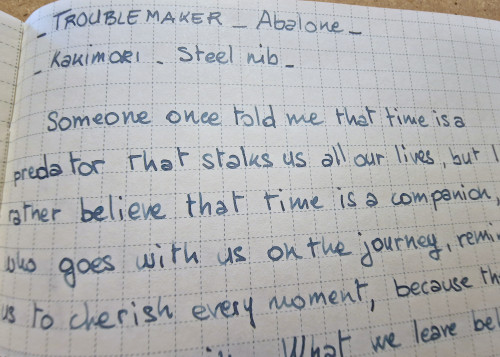 - TROUBLEMAKER - Abalone -
- KAKIMORI - Steel nib -
Someone once told me that time is a
predator that stalks us all our lives, but I
rather believe that time is a companion,
who goes with us on the journey, remin
us to cherish every moment, because th
What we leave beh